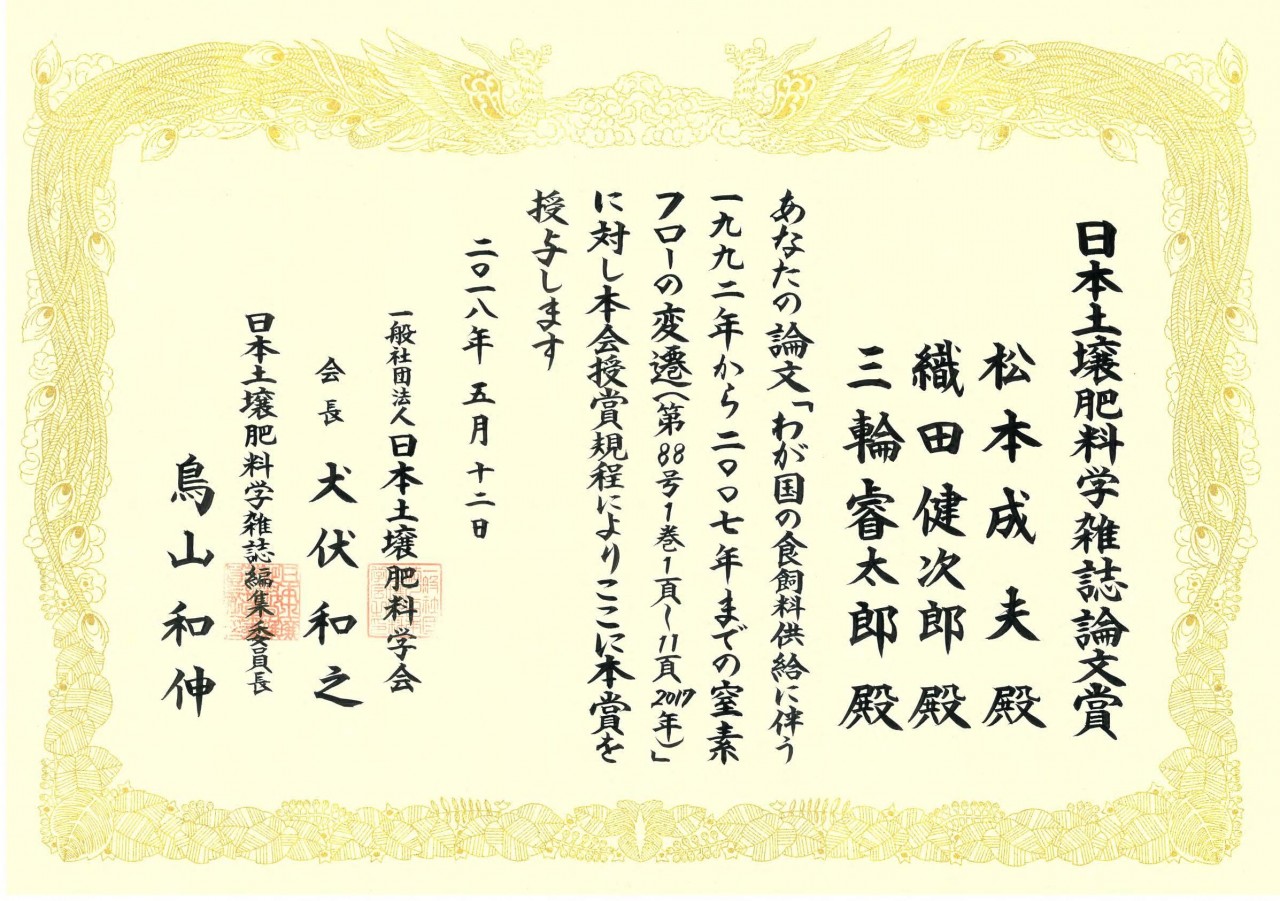 日本土壌肥料学雑誌論文賞
松本成夫殿
織田健次郎殿
三輪睿太郎殿
あなたの論文「わが国の食飼料供給に伴う
一九九二年から二〇〇七年までの窒素
フローの変遷(第88号1巻1頁〜11頁2017年)」
に対し本会授賞規程によりここに本賞を
授与します
二〇一八年五月十二日
一般社団法人日本土壌肥料学会
会長 犬伏和之
日本土壌肥料学雑誌編集委員長
鳥山和伸